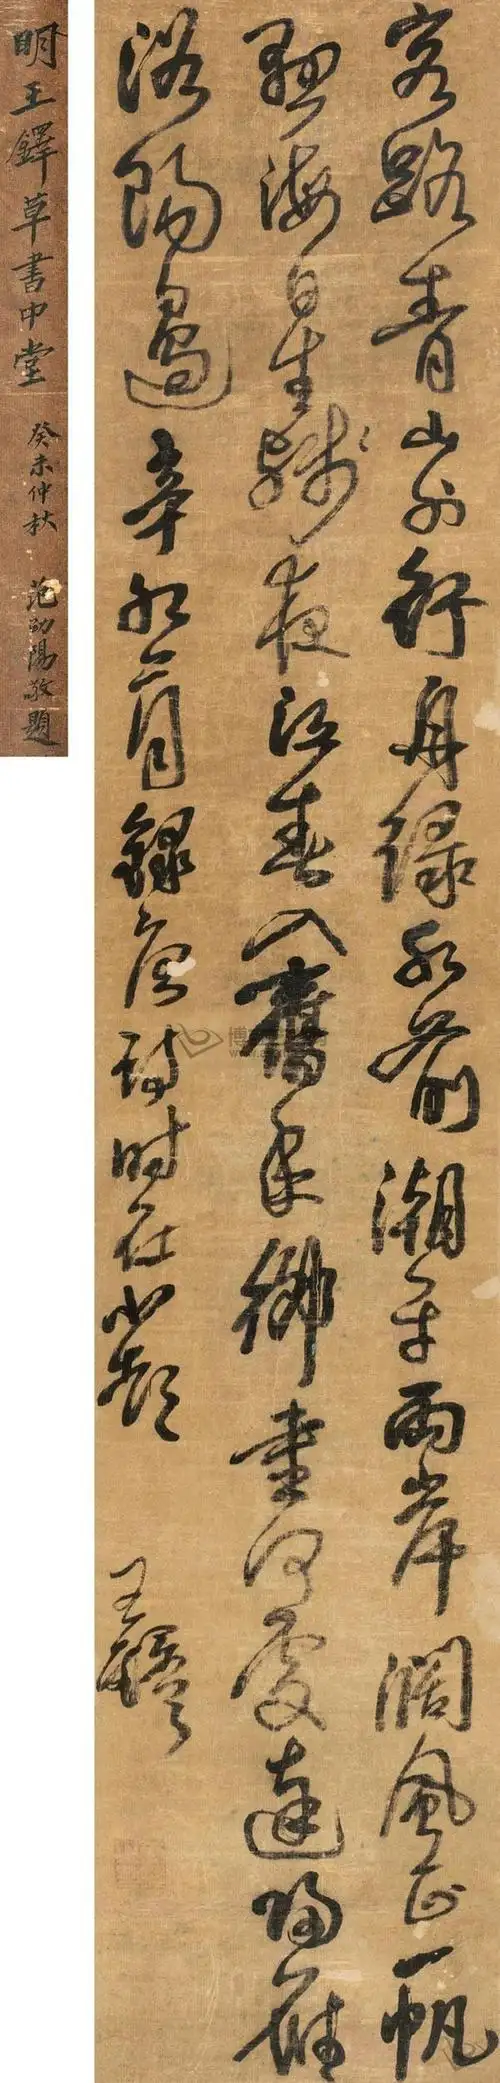 客路青山外行舟緑水前潮平兩岸闊風正一帆
懸海日生殘夜江春入舊年鄉書何處達歸雁
洛陽邊辛月錄唐詩時在小
王鐸
明王鐸草書中堂
癸未仲秋 范陽敬題